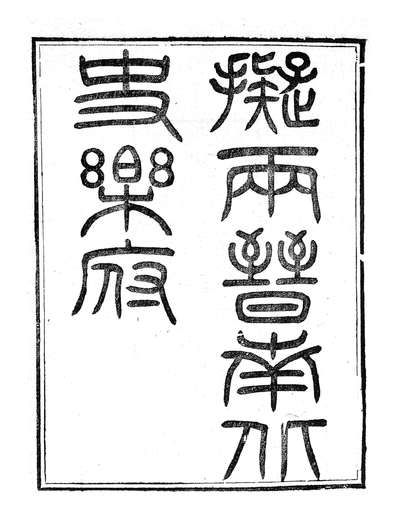 擬兩晉南北
史樂府